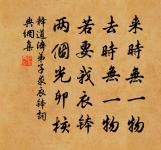 來時無一物
去時無一物
若要我衣鉢
兩個光卵核
釋道濟弟子求衣鉢詞
典網集